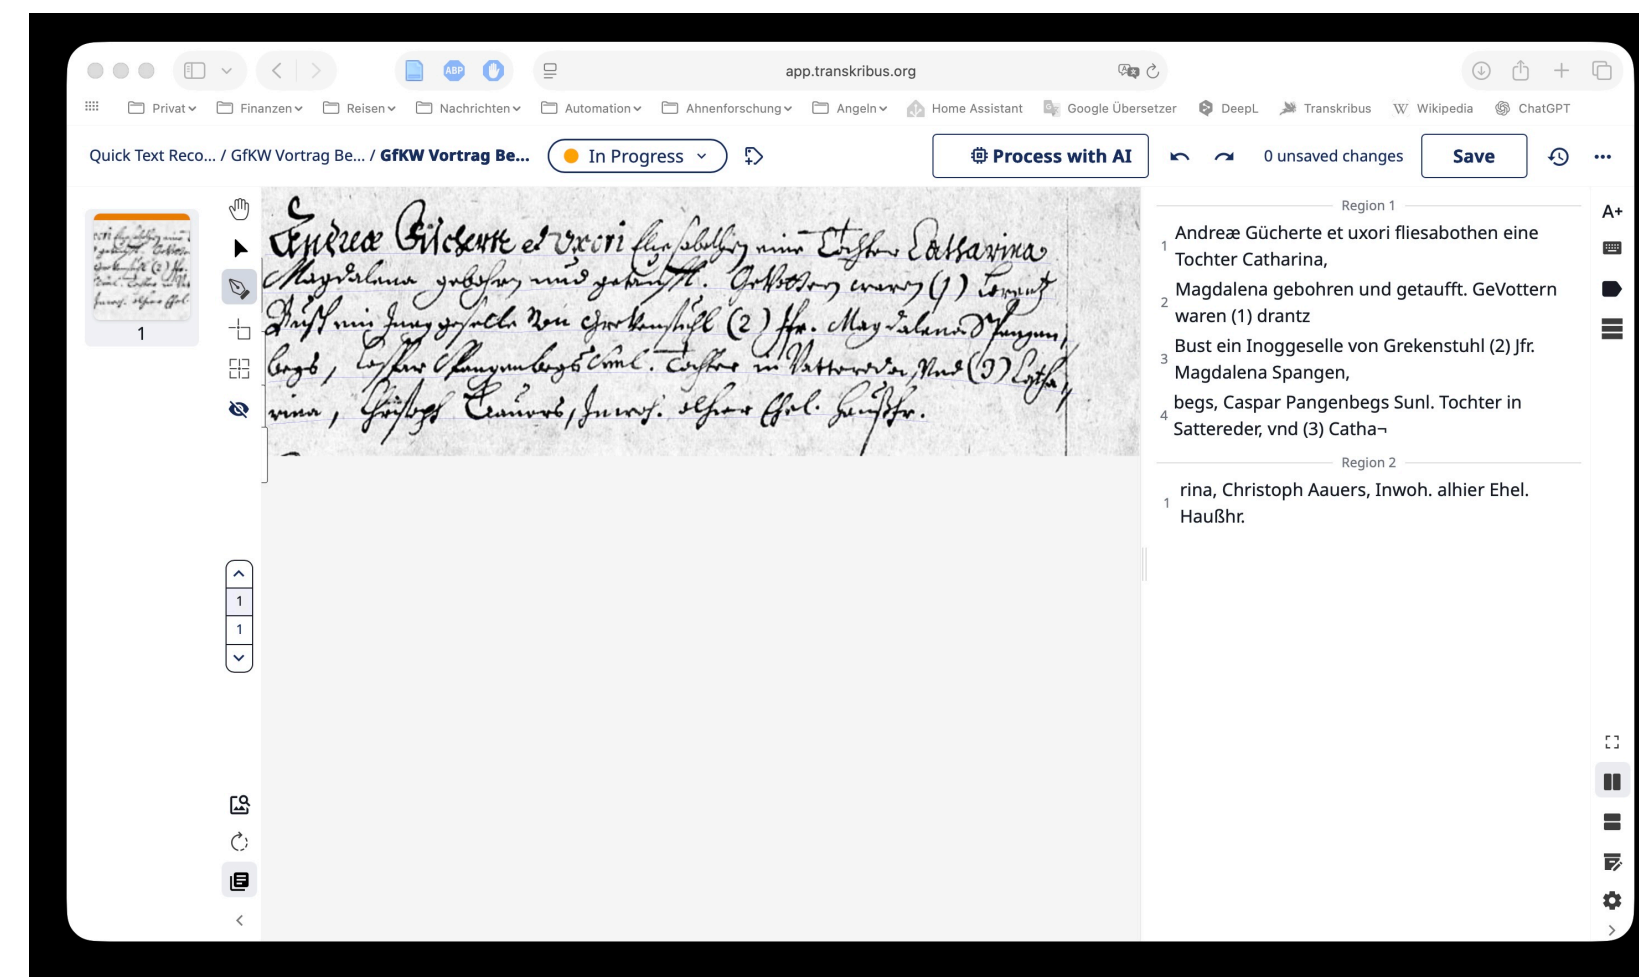 app.transkribus.org
Privat
Finanzen
Reisen
Nachrichten
Automation
Ahnenforschung
Angeln
Home Assistant
Google Übersetzer
DeepL
Transkribus
Wikipedia
ChatGPT
Quick Text Reco... / GfKW Vortrag Be... / GfKW Vortrag Be...
In Progress
Process with AI
0 unsaved changes
Save
ABP
1
Andreæ Gücherte et uxori Elisabethen eine Tochter Catharina
Magdalena gebohren und getaufft. GeVottern waren (1) Lorentz
Bust ein Junggeselle von (2) Jfr. Magdalena Spangen,
begs, Caspar Spangenbergs Tochter in Vatteroda, Vnd (3) Catha,
rina, Christoph Inwoh. alhier Ehel. Haußfr.
1
1
Region 1
1 Andreæ Gücherte et uxori fliesabothen eine
Tochter Catharina,
2 Magdalena gebohren und getaufft. GeVottern
waren (1) drantz
3 Bust ein Inoggeselle von Grekenstuhl (2) Jfr.
Magdalena Spangen,
4 begs, Caspar Pangenbegs Sunl. Tochter in
Sattereder, vnd (3) Catha¬
Region 2
1 rina, Christoph Aauers, Inwoh. alhier Ehel.
Haußhr.
A+